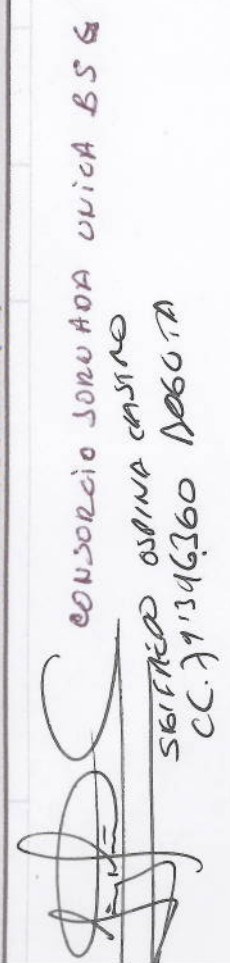 CONSORCIO JORNADA UNICA BSG
SIGIFREDO OSPINA CASTRO
CC. 79'346360 BOGOTA